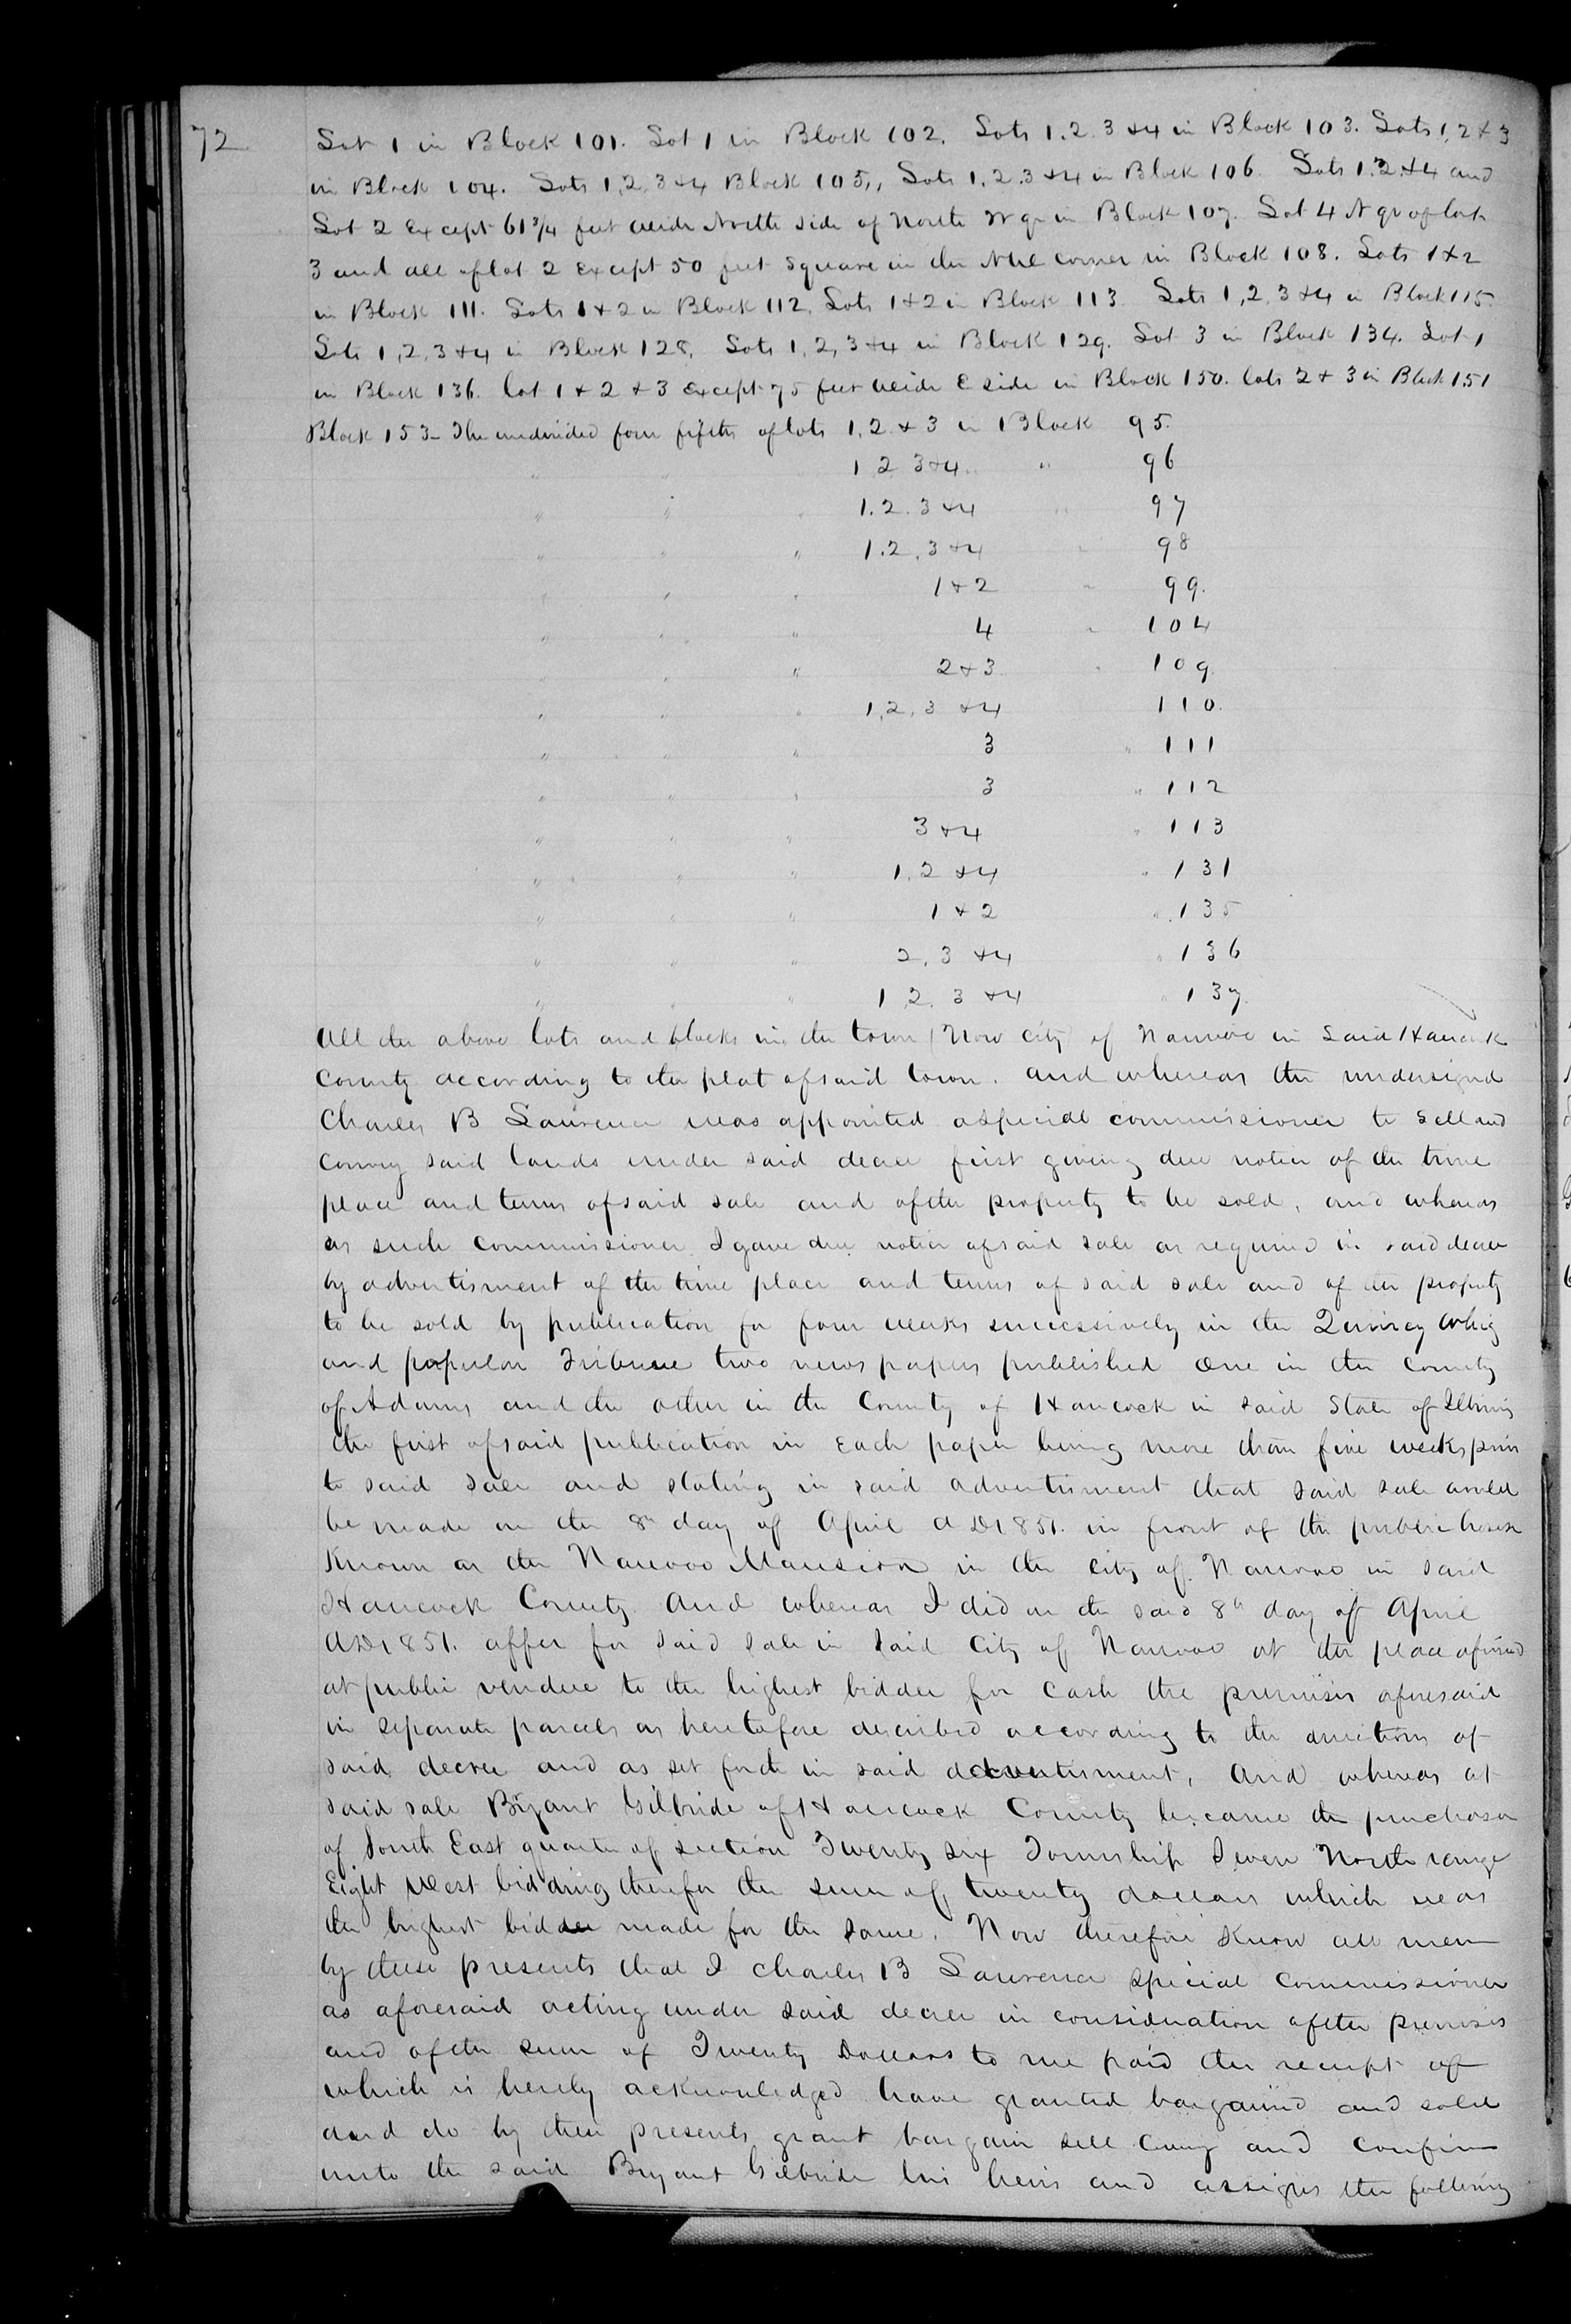 72
Lot 1 in Block 101. Lot 1 in Block 102. Lots 1.2.3 &4 in Block 103. Lots 1,2 & 3
in Block 104. Lots 1,2,3&4 Block 105,, Lots 1.2.3&4 in Block 106. Lots 1.2.&4 and
Lot 2 Except 61 3/4 feet wide North side of North W qr in Block 107. Lot 4 N qr of lot
3 and all of lot 2 Except 50 feet Square in the NW Corner in Block 108. Lots 1&2
in Block 111. Lots 1&2 in Block 112. Lots 1&2 in Block 113. Lots 1,2,3&4 in Block 115.
Lots 1,2,3&4 in Block 128. Lots 1,2,3&4 in Block 129. Lot 3 in Block 134. Lot 1
in Block 136. lot 1 & 2 & 3 except 75 feet wide E side in Block 150. lots 2 & 3 in Block 151
Block 153 - The undivided four fifths of lots 1,2 & 3 in Block 95.
" " 1 2 3&4 " 96
" " " 1.2.3&4 " 97
" " " 1.2.3&4 " 98
" " " 1&2 " 99.
" " " 4 " 104
" " " 2&3 " 109.
" " " 1,2,3 &4 110.
" " " 3 " 111
" " " 3 " 112
" " " 3&4 " 113
" " " 1.2 &4 " 131
" " " 1 & 2 " 135
" " " 2,3 &4 " 136
" " " 1 2. 3 &4 " 137.
All the above lots and blocks in the town (Now City) of Nauvoo in Said Hancock
County according to the plat of said town. and whereas the undersigned
Charles B Lawrence was appointed a special commissioner to Sell and
Convey said lands under said decree first giving due notice of the time
place and terms of said sale and of the property to be sold, and whereas
as such Commissioner I gave due notice of said sale as required in said decree
by advertisment of the time place and terms of said sale and of the property
to be sold by publication for four weeks successively in the Quincy Whig
and popular Tribune two news papers published One in the County
of Adams and the other in the County of Hancock in said State of Illinois
the first of said publication in Each paper being more than five weeks prior
to said sale and stating in said advertisment that said sale would
be made on the 8th day of April AD 1851. in front of the public house
Known as the Nauvoo Mansion in the City of Nauvoo in said
Hancock County. And whereas I did on the said 8th day of April
AD 1851. offer for said sale in said City of Nauvoo at the place aforesaid
at public vendue to the highest bidder for Cash the premises aforesaid
in Separate parcels as heretofore described according to the directions of
said decree and as set forth in said advertisment, And whereas at
said sale Bryant Gilbride of Hancock County became the purchaser
of South East quarter of section Twenty six Township Seven North range
Eight West bidding therefor the sum of twenty dollars which was
the highest bidder made for the same. Now therefore Know all men
by these presents that I Charles B Lawrence Special Commissioner
as aforesaid acting under said decree in consideration of the premises
and of the sum of Twenty Dollars to me paid the receipt of
which is hereby acknowledged have granted bargained and sold
and do by these presents grant bargain sell Convey and Confirm
unto the said Bryant Gilbride his heirs and assigns the following